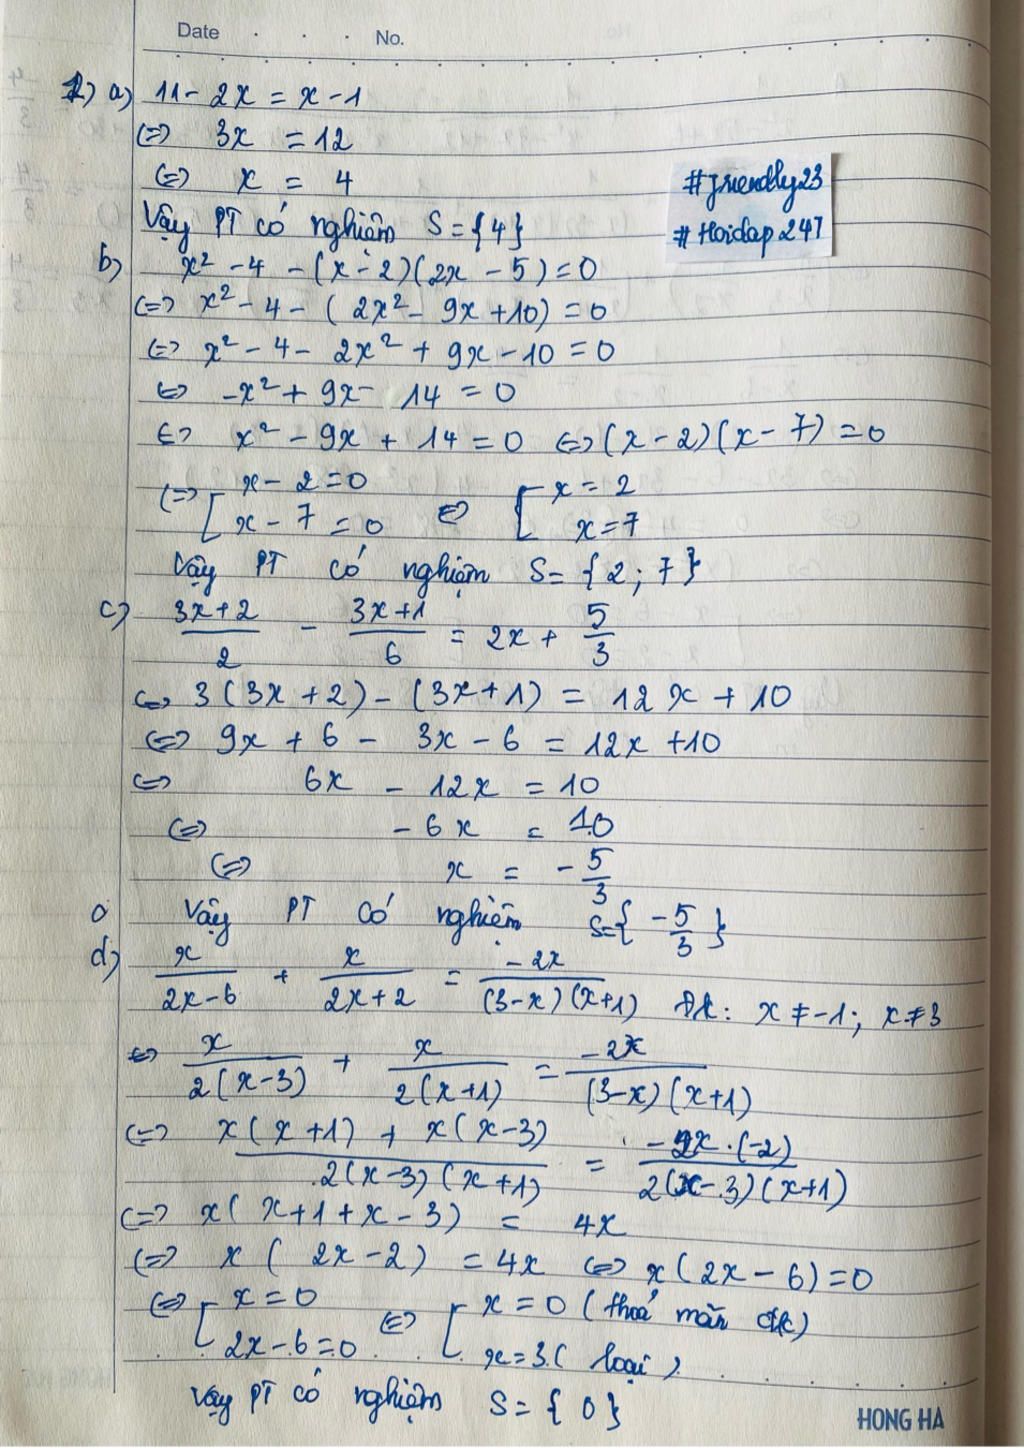 Date . . . No.
1) a) 11 - 2x = x - 1
<=> 3x = 12
<=> x = 4
#friendly23
#Hoidap247
Vậy PT có nghiệm S = {4}
b) x² - 4 - (x - 2)(2x - 5) = 0
<=> x² - 4 - (2x² - 9x + 10) = 0
<=> x² - 4 - 2x² + 9x - 10 = 0
<=> -x² + 9x - 14 = 0
<=> x² - 9x + 14 = 0 <=> (x - 2)(x - 7) = 0
<=> [ x - 2 = 0 <=> [ x = 2
x - 7 = 0 x = 7
Vậy PT có nghiệm S = {2; 7}
c) (3x+2)/2 - (3x+1)/6 = 2x + 5/3
<=> 3(3x + 2) - (3x + 1) = 12x + 10
<=> 9x + 6 - 3x - 6 = 12x + 10
<=> 6x - 12x = 10
<=> -6x = 10
<=> x = -5/3
Vậy PT có nghiệm S = {-5/3}
d) x/(2x-6) + x/(2x+2) = -2x/((3-x)(x+1)) Đk: x ≠ -1; x ≠ 3
<=> x/(2(x-3)) + x/(2(x+1)) = -2x/((3-x)(x+1))
<=> (x(x+1) + x(x-3))/(2(x-3)(x+1)) = (-2x.(-2))/(2(x-3)(x+1))
<=> x(x + 1 + x - 3) = 4x
<=> x(2x - 2) = 4x <=> x(2x - 6) = 0
<=> [ x = 0 <=> [ x = 0 (thoả mãn đk)
2x - 6 = 0 x = 3 (loại)
Vậy PT có nghiệm S = {0}
HONG HA